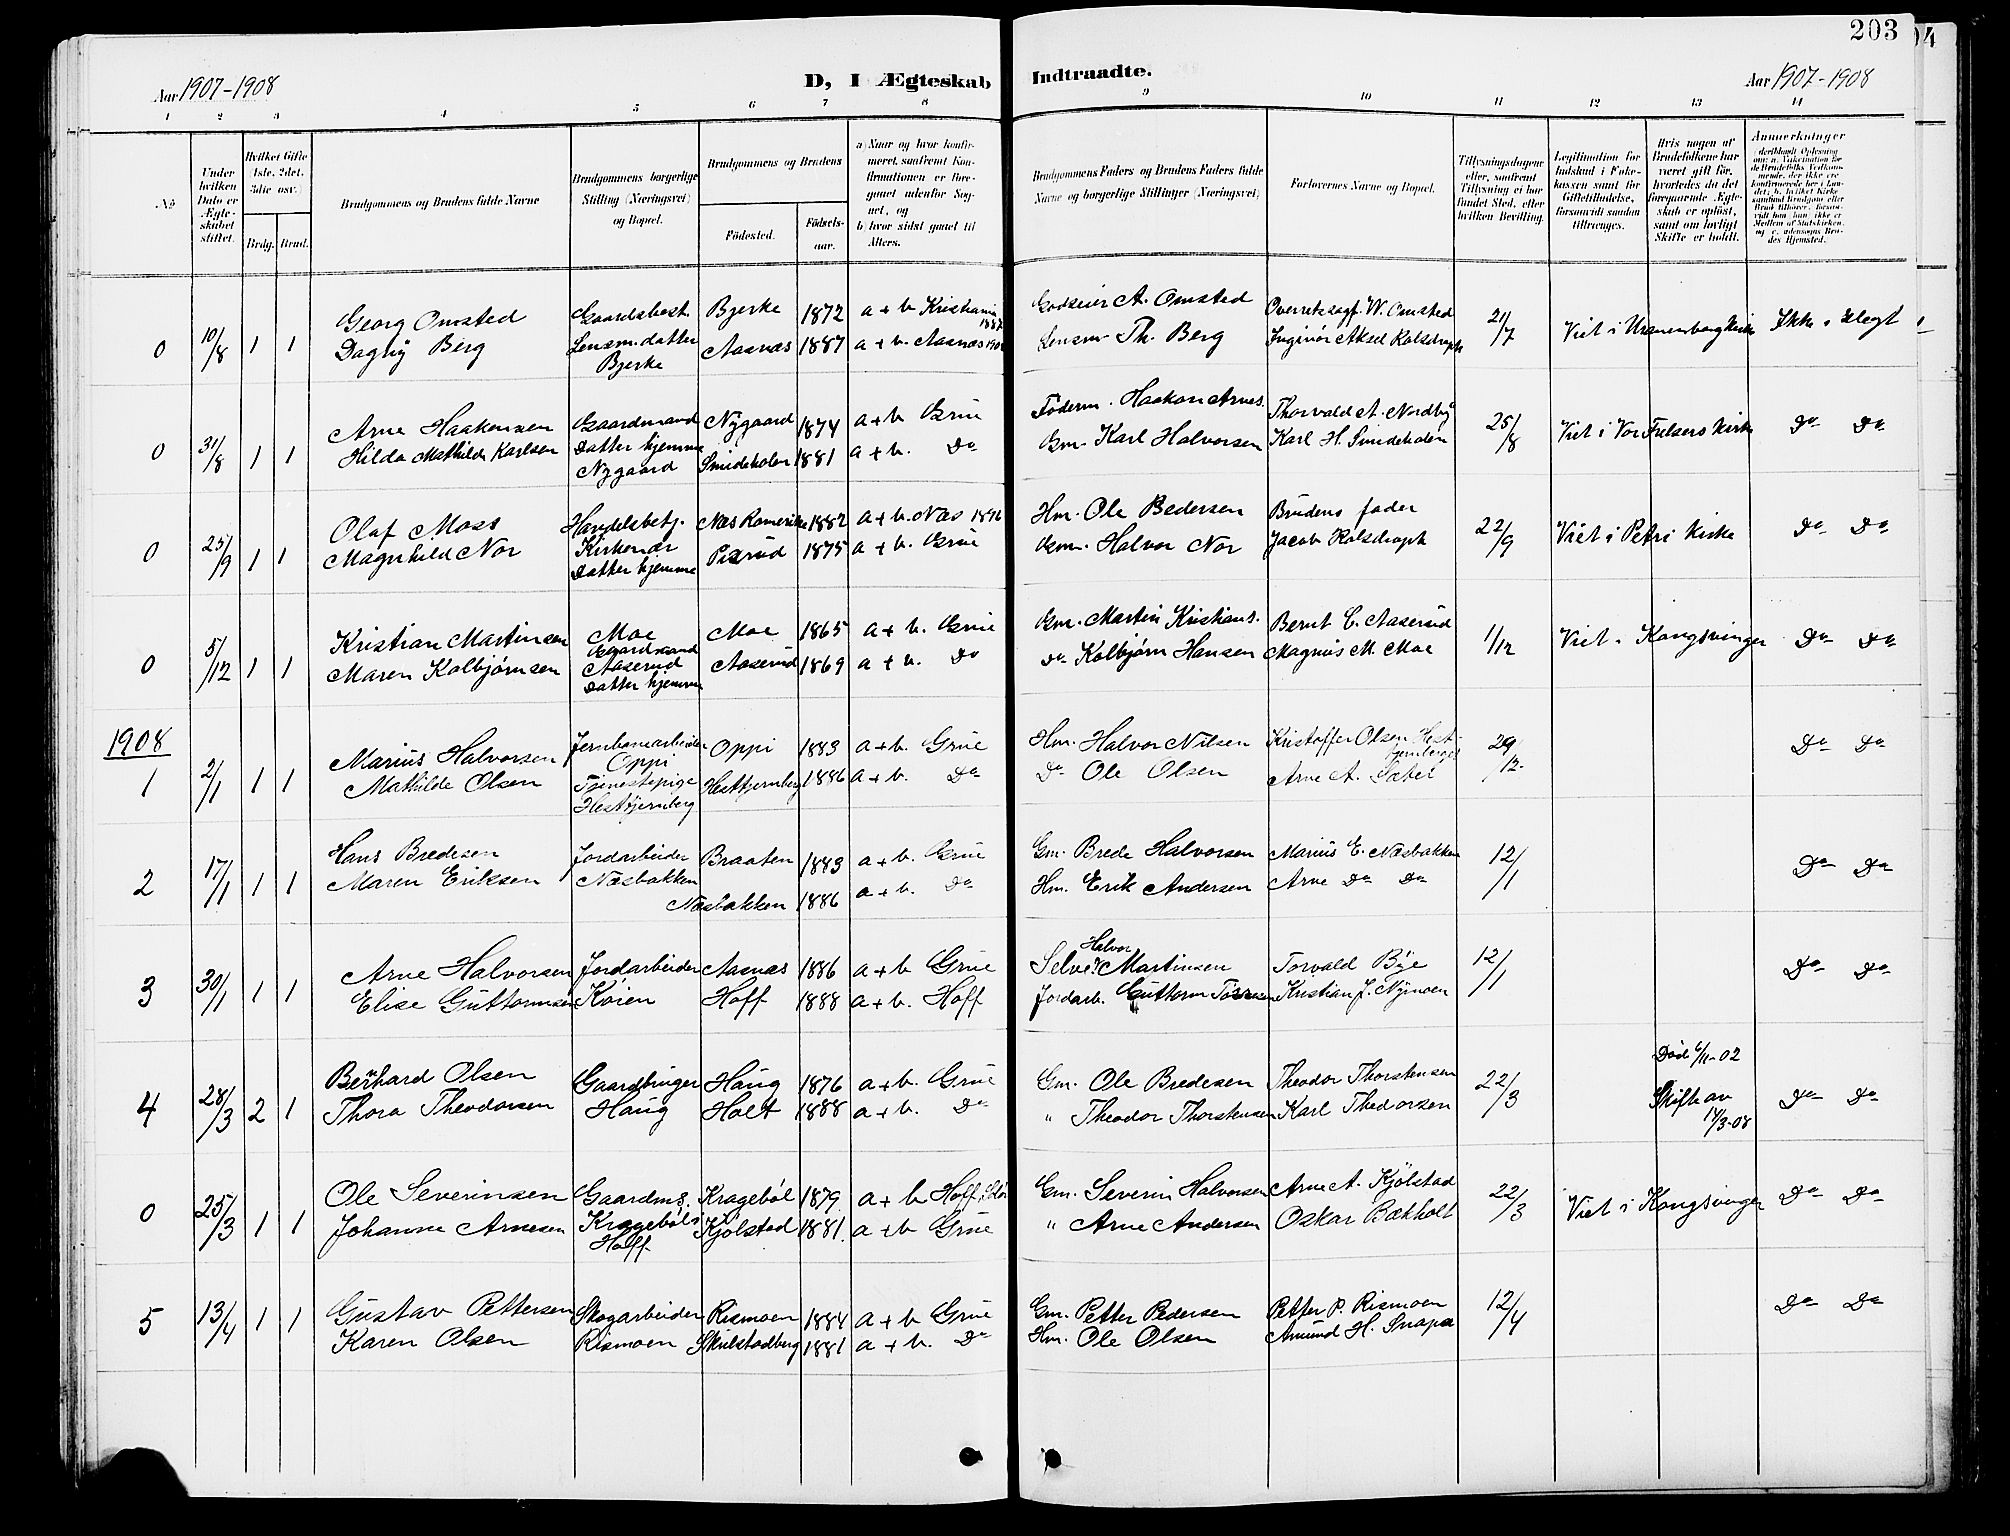 203
Aar 1907-1908
D, I Ægteskab
Indtraadte.
Aar 1907-1908
1 2 3 4 5 6 7 8 9 10 11 12 13 14
No
Under hvilken Dato er Ægteskabet stiftet.
Hvilket Gifte (1ste, 2det, 3die osv.)
Brdg. Brud.
Brudgommens og Brudens fulde Navne
Brudgommens borgerlige Stilling (Næringsvei) og Bopæl.
Brudgommens og Brudens
Fødested. Fødselsaar.
a) Naar og hvor konfirmeret, saafremt Konfirmationen er foregaaet udenfor Sognet, og
b) hvor sidst gaaet til Alters.
Brudgommens Faders og Brudens Faders fulde Navne og borgerlige Stillinger (Næringsvei)
Forlovernes Navne og Bopæl.
Tillysningsdagene eller, saafremt Tillysning ei har fundet Sted, efter hvilken Bevilling.
Legitimation for Indskud i Enkekassen samt for Giftetilladelse, forsaavidt saadan tiltrænges.
Hvis nogen af Brudefolkene har været gift før, hvorledes da det foregaaende Ægteskab er opløst, samt om lovligt Skifte er holdt.
Anmerkninger
0 10/8 1 1 Georg Omsted Gaardsbest. Bjerke 1872 a + b Kristiania Godseier A. Omsted Overretssagf. W. Omsted 21/7 Viet i Uranienborg Kirke Ikke i Slegt
Dagny Berg Lensm. datter Aasnæs 1887 a + b. Aasnæs Lensm. Th. Berg Inginiør Aksel Kolsdroph
Bjerke
0 31/8 1 1 Arne Haakensen Gaardmand Nygaard 1874 a + b Grue Føderm. Haakon Arnes. Thorvald A. Nordby 25/8 Viet i Vor Frelsers Kirke Do Do
Hilda Mathilde Karlsen Datter hjemme Smideholen 1881 a + b. Do Gm. Karl Halvorsen Karl H. Smideholen
Nygaard
0 25/9 1 1 Olaf Moss Handelsbetj. Næs Romerike 1882 a + b. Næs 1896 Hm. Ole Pedersen Brudens fader 22/9 Viet i Petri Kirke Do Do
Magnhild Nor Kirkenær 1875 a + b. Grue Gm. Halvor Nor Jacob Kolsdroph
Datter hjemme
0 5/12 1 1 Kristian Martinsen Moe Moe 1865 a + b. Grue Gm. Martin Kristians. Bernt C. Aaserud 1/12 Viet i Kongsvinger Do Do
Gaardmand
Maren Kolbjørnsen Aaserud Aaserud 1869 a + b. Do Do Kolbjørn Hansen Magnus M. Moe
Datter hjemme
1908
1 2/1 1 1 Marius Halvorsen Jernbanearbeider Oppi 1883 a + b. Grue Hm. Halvor Nilsen Kristoffer Olsen Hestjernberget 29/12 Do Do
Oppi
Mathilde Olsen Tjenestepige Hesttjernberg 1886 a + b. Do Do Ole Olsen Arne A. Sæter
Hesttjernberg
2 17/1 1 1 Hans Bredesen Jordarbeider Braaten 1883 a + b. Grue Gm. Brede Halvorsen Marius E. Næsbakken 12/1 Do Do
Maren Eriksen Næsbakken Næsbakken 1886 a + b. Do Hm. Erik Andersen Arne Do Do
3 30/1 1 1 Arne Halvorsen Jordarbeider Aasnæs 1886 a + b Grue Selveier Halvor Martinsen Torvald Bye 12/1 Do Do
Elise Guttormsen Køien Hoff 1888 a + b. Hoff Jordarb. Guttorm Kristian J. Nymoen
4 28/3 2 1 Bernhard Olsen Gaardbruger Haug 1876 a + b. Grue Gm. Ole Bredesen Theodor Thorstensen 22/3 Død 6/11-02 Do Do
Thora Theodorsen Haug Holt 1888 a + b. Do " Theodor Thorstensen Karl Thedorsen Skifte av 14/3-08
0 25/3 1 1 Ole Severinsen Gaardms. Kragebøl 1879 a + b Hoff, Solør Gm. Severin Halvorsen Arne A. Kjølstad 22/3 Viet i Kongsvinger Do Do
Johanne Arnesen Kragebøl i Kjølstad 1881. a + b Grue " Arne Andersen Oskar Bækholt
Hoff
5 13/4 1 1 Gustav Pettersen Skogarbeider Rismoen 1884 a + b Grue Gm. Petter Pedersen Petter P. Rismoen 12/4 Do Do
Karen Olsen Rismoen Skulstadberg 1881 a + b. Do Hm. Ole Olsen Amund H. Snapa